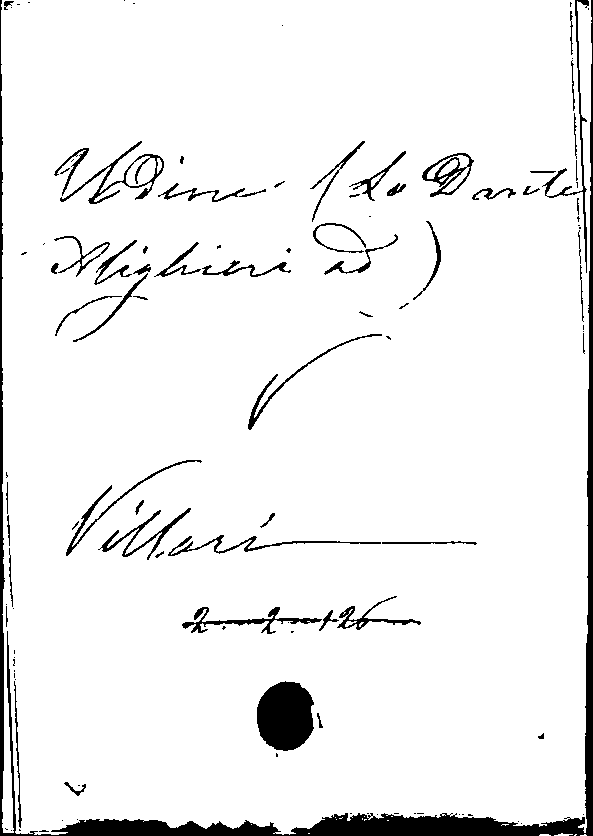 Udine (La Dante
Alighieri ad)
V
Villari
2. 2. 126